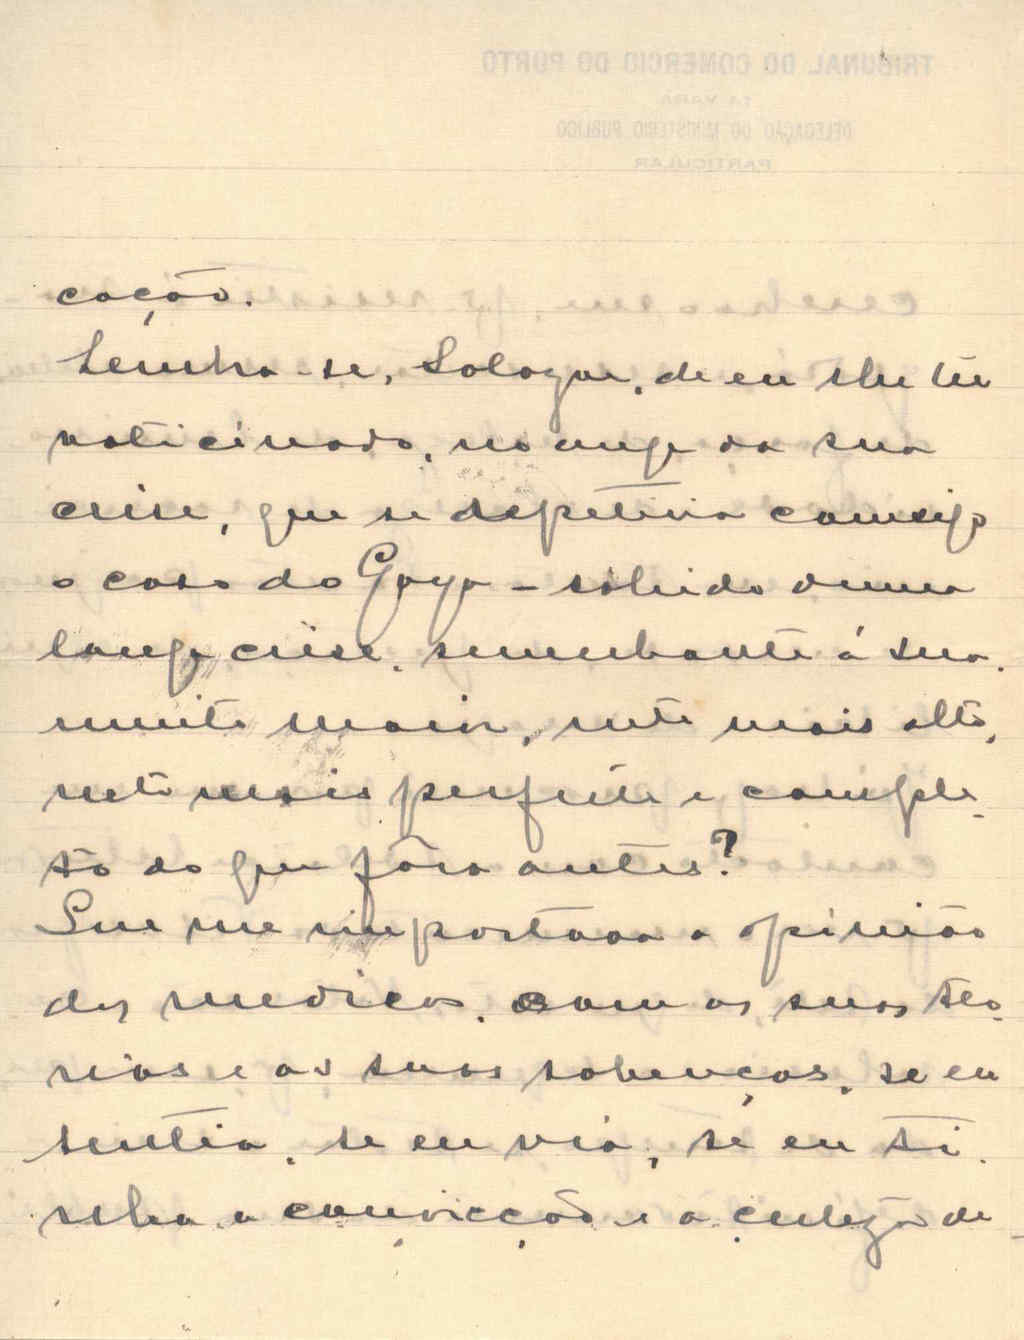 TRIBUNAL DO COMERCIO DO PORTO
1.ª VARA
DELEGAÇÃO DO MINISTERIO PUBLICO
PARTICULAR
cação.
Lembra-se, Salazar, de eu lhe ter
vaticinado, no auge da sua
crise, que se repetiria comsigo
o caso do Goya – sahido duma
longa crise, semelhante á sua,
muito maior, mto mais alto,
mto mais perfeito e comple-
to do que fôra antes?
Que me importava a opinião
dos medicos, com as suas teo-
rias e as suas sabenças, se eu
sentia, se eu via, se eu ti-
nha a convicção e a certeza de